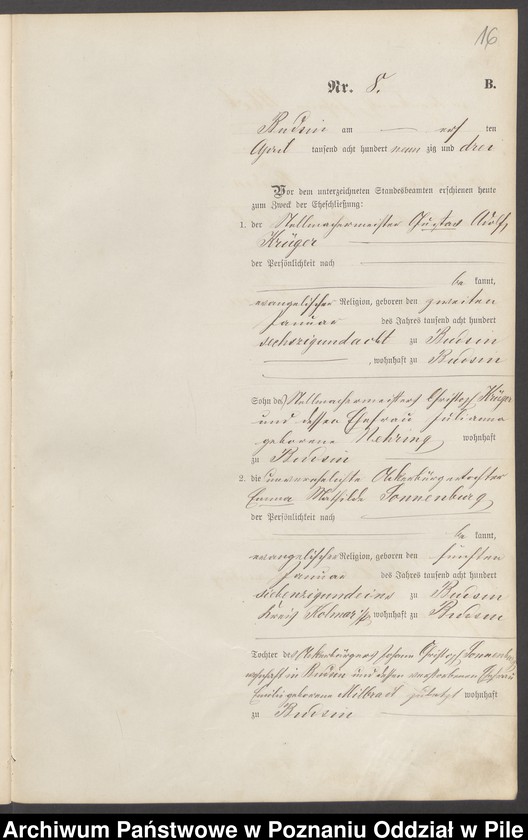 16
Nr. 8. B.
Budsin am ten
April tausend acht hundert neun zig und drei
Vor dem unterzeichneten Standesbeamten erschienen heute
zum Zweck der Eheschließung:
1. der Stellmachermeister Gustav Adolf
Krüger
der Persönlichkeit nach
be kannt,
evangelischer Religion, geboren den zweiten
Januar des Jahres tausend acht hundert
sechszigundacht zu Budsin
, wohnhaft zu Budsin
Sohn des Stellmachermeisters Christoph Krüger
und dessen Ehefrau Julianna
geborene Nehring wohnhaft
zu Budsin
2. die unverehelichte Ackerbürgertochter
Emma Mathilde Sonnenburg
der Persönlichkeit nach
be kannt,
evangelischer Religion, geboren den fünften
Januar des Jahres tausend acht hundert
siebenzigundeins zu Budsin
Kreis Kolmar i/P wohnhaft zu Budsin
Tochter des Ackerbürgers Johann Christoph Sonnenburg
wohnhaft in Budsin und dessen verstorbenen Ehefrau
Emilie geborene Milbradt zuletzt wohnhaft
zu Budsin
Archiwum Państwowe w Poznaniu Oddział w Pile